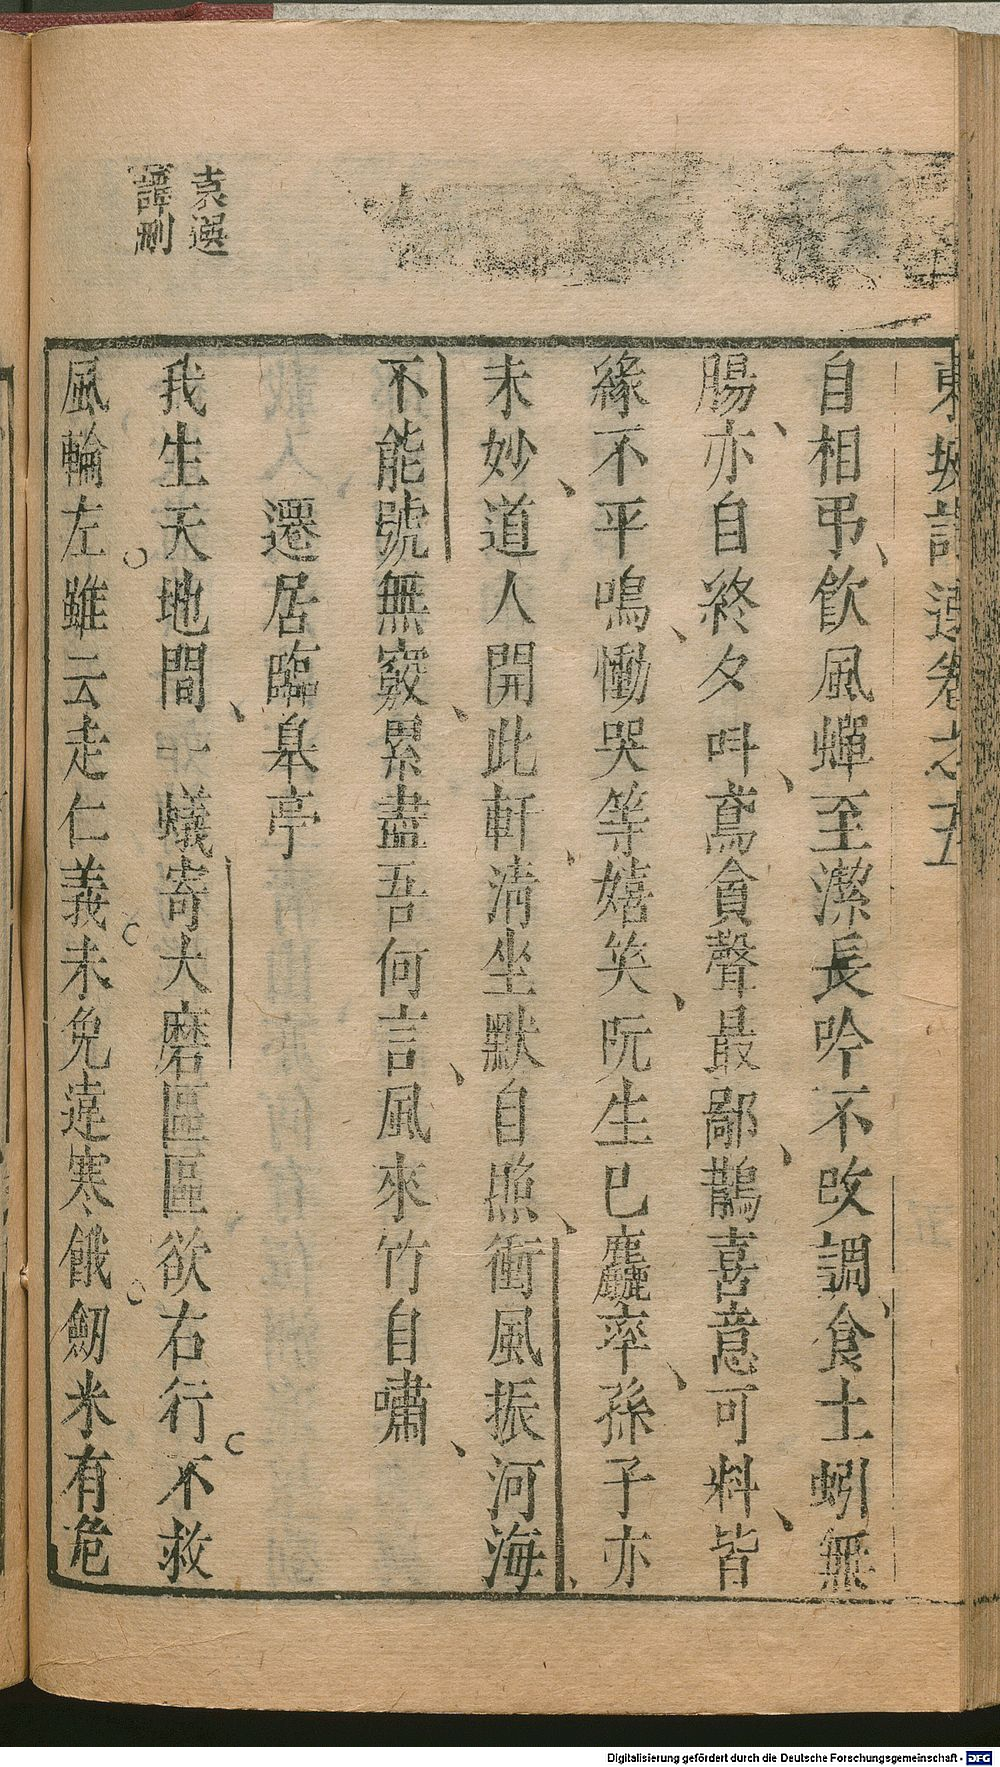 東坡詩選卷之五
自相弔飲風蟬至潔長吟不改調食土蚓無
腸亦自終夕叫鳶貪聲最鄙鵲喜意可料皆
緣不平鳴慟哭等嬉笑阮生已麤率孫子亦
未妙道人開此軒清坐默自照衝風振河海
不能號無竅累盡吾何言風來竹自嘯
遷居臨皐亭
我生天地間一蟻寄大磨區區欲右行不救
風輪左雖云走仁義未免違寒餓劒米有危
袁選
譚刪
Digitalisierung gefördert durch die Deutsche Forschungsgemeinschaft - DFG